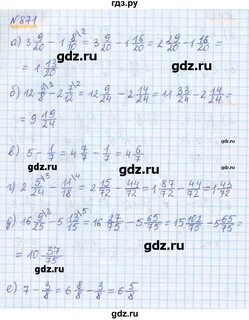 № 871
а) 3 9/20 - 1 8/10 \2 = 3 9/20 - 1 16/20 = 2 29/20 - 1 16/20 =
= 1 13/20
б) 12 3/8 \3 - 2 7/12 \2 = 12 9/24 - 2 14/24 = 11 33/24 - 2 14/24 =
= 9 19/24
в) 5 - 1/7 = 4 7/7 - 1/7 = 4 6/7
г) 2 5/24 \3 - 11/18 \4 = 2 15/72 - 44/72 = 1 87/72 - 44/72 = 1 43/72
д) 16 9/25 \3 - 5 13/15 \5 = 16 27/75 - 5 65/75 = 15 102/75 - 5 65/75 =
= 10 37/75
е) 7 - 3/8 = 6 8/8 - 3/8 = 6 5/8